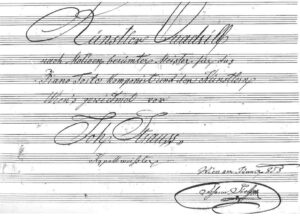 Künstler Quadrille
nach Motiven berühmter Meister für das
Piano Forte komponirt und den Künstlern
Wien's gewidmet von
Joh. Strauss
Kapellmeister
Wien am
Johann Strauss